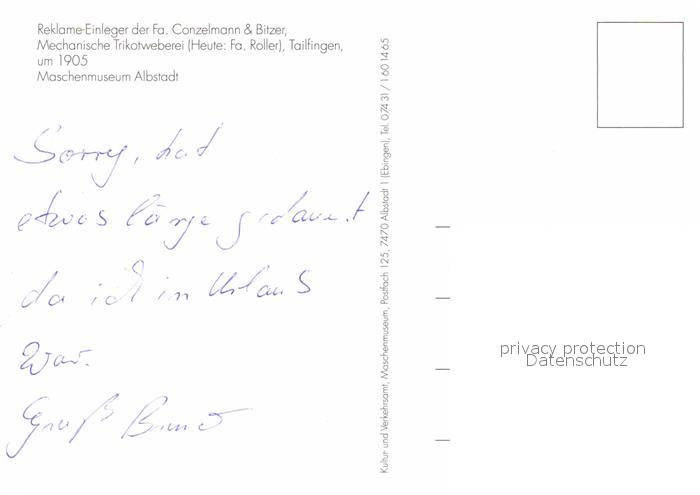 Reklame-Einleger der Fa. Conzelmann & Bitzer,
Mechanische Trikotweberei (Heute: Fa. Roller), Tailfingen,
um 1905
Maschenmuseum Albstadt
Sorry, hat
etwas länge gedauert
da ich im Urlaub
war.
Gruß
Kultur- und Verkehrsamt, Maschenmuseum, Postfach 125, 7470 Albstadt 1 (Ebingen), Tel. 07431/1601465
privacy protection
Datenschutz